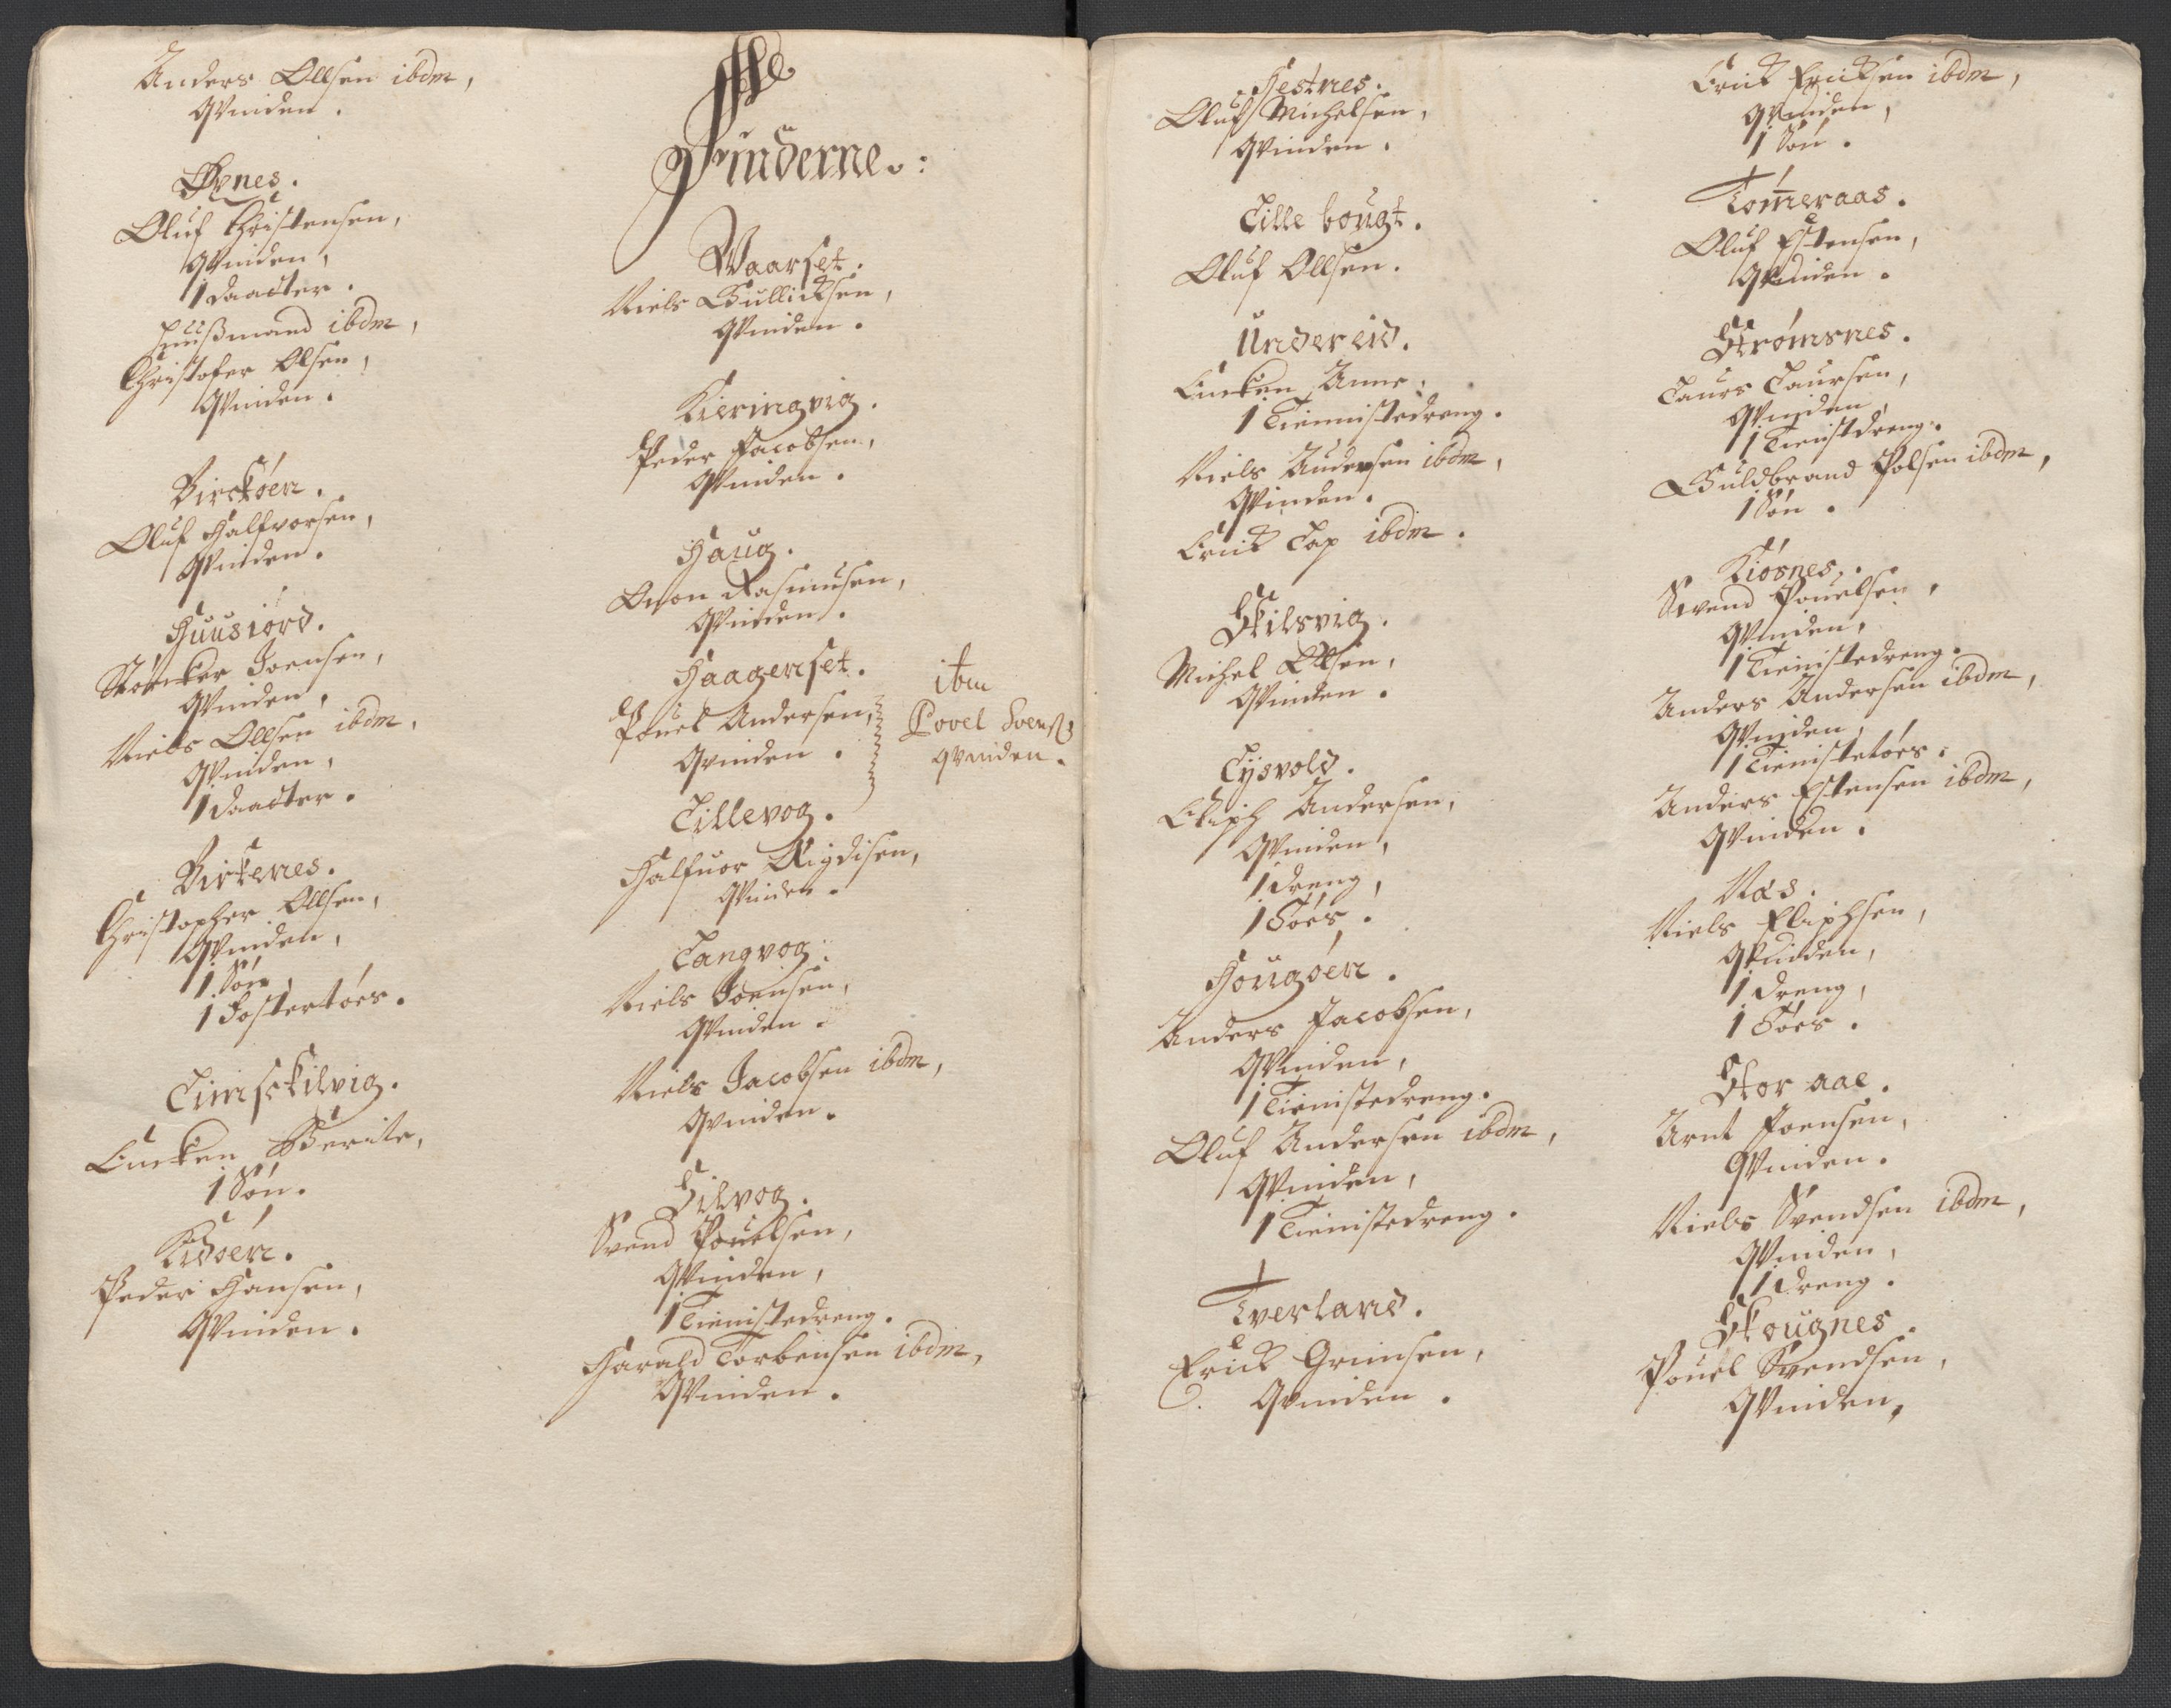 Anders Ollsen ibdm,
Qvinden.
Øxnes.
Oluf Christensen,
Qvinden,
1 Daatter.
Huußmand ibdm,
Christofer Olsen,
Qvinden.
Birckøen.
Oluf Halfvorsen,
Qvinden.
Huusiord.
Størcker Joensen,
Qvinden,
Niels Ollsen ibdm,
Qvinden,
1 Daatter.
Birkenes.
Christopher Ollsen,
Qvinden,
1 Søn,
1 Fostertøes.
Timsckilvig.
Encken Berite,
1 Søn.
Kidøen.
Peder Hansen,
Qvinden.
Finderne.
Waarset.
Niels Gullicksen,
Qvinden.
Kieringvig.
Peder Jacobsen,
Qvinden.
Haug.
Onon Rasmusen,
Qvinden.
Haagenset.
Pouel Andersen,
Qvinden.
ibm
Povel Svenß:
qvinden.
Lillevog.
Halfuor Rigdisen,
Qvinden.
Langvog.
Niels Joensen,
Qvinden.
Niels Jacobsen ibdm,
Qvinden.
Silvog.
Svend Pouelsen,
Qvinden,
1 Tienistedreng.
Harald Torbensen ibdm,
Qvinden.
Hestnes.
Oluf Michelsen,
Qvinden.
Lille bougt.
Oluf Ollsen.
Undereid.
Encken Anne,
1 Tiennistedreng.
Niels Andersen ibdm,
Qvinden.
Erick Lap ibdm.
Skilsvig.
Michel Ollsen,
Qvinden.
Lysvold.
Eliph Andersen,
Qvinden,
1 Dreng,
1 Tøes.
Hougøen.
Anders Jacobsen,
Qvinden,
1 Tienistedreng.
Oluf Andersen ibdm,
Qvinden,
1 Tienistedreng.
Tverland.
Erick Grimsen,
Qvinden.
Erick Ericksen ibdm,
Qvinden,
1 Søn.
Tømeraas.
Oluf Estensen,
Qvinden.
Strømsnes.
Laurs Laursen,
Qvinden,
1 Tienistdreng.
Guldbrand Polsen ibdm,
1 Søn.
Kiøsnes.
Svend Pouelsen,
Qvinden,
1 Tienistedreng.
Anders Andersen ibdm,
Qvinden,
1 Tienistetøes.
Anders Estensen ibdm,
Qvinden.
Næs.
Niels Eliphsen,
Qvinden,
1 Dreng,
1 Tøes.
Stor aae.
Arnt Joensen,
Qvinden.
Niels Svendsen ibdm,
Qvinden,
1 Dreng.
Skougnes.
Pouel Svendsen,
Qvinden,